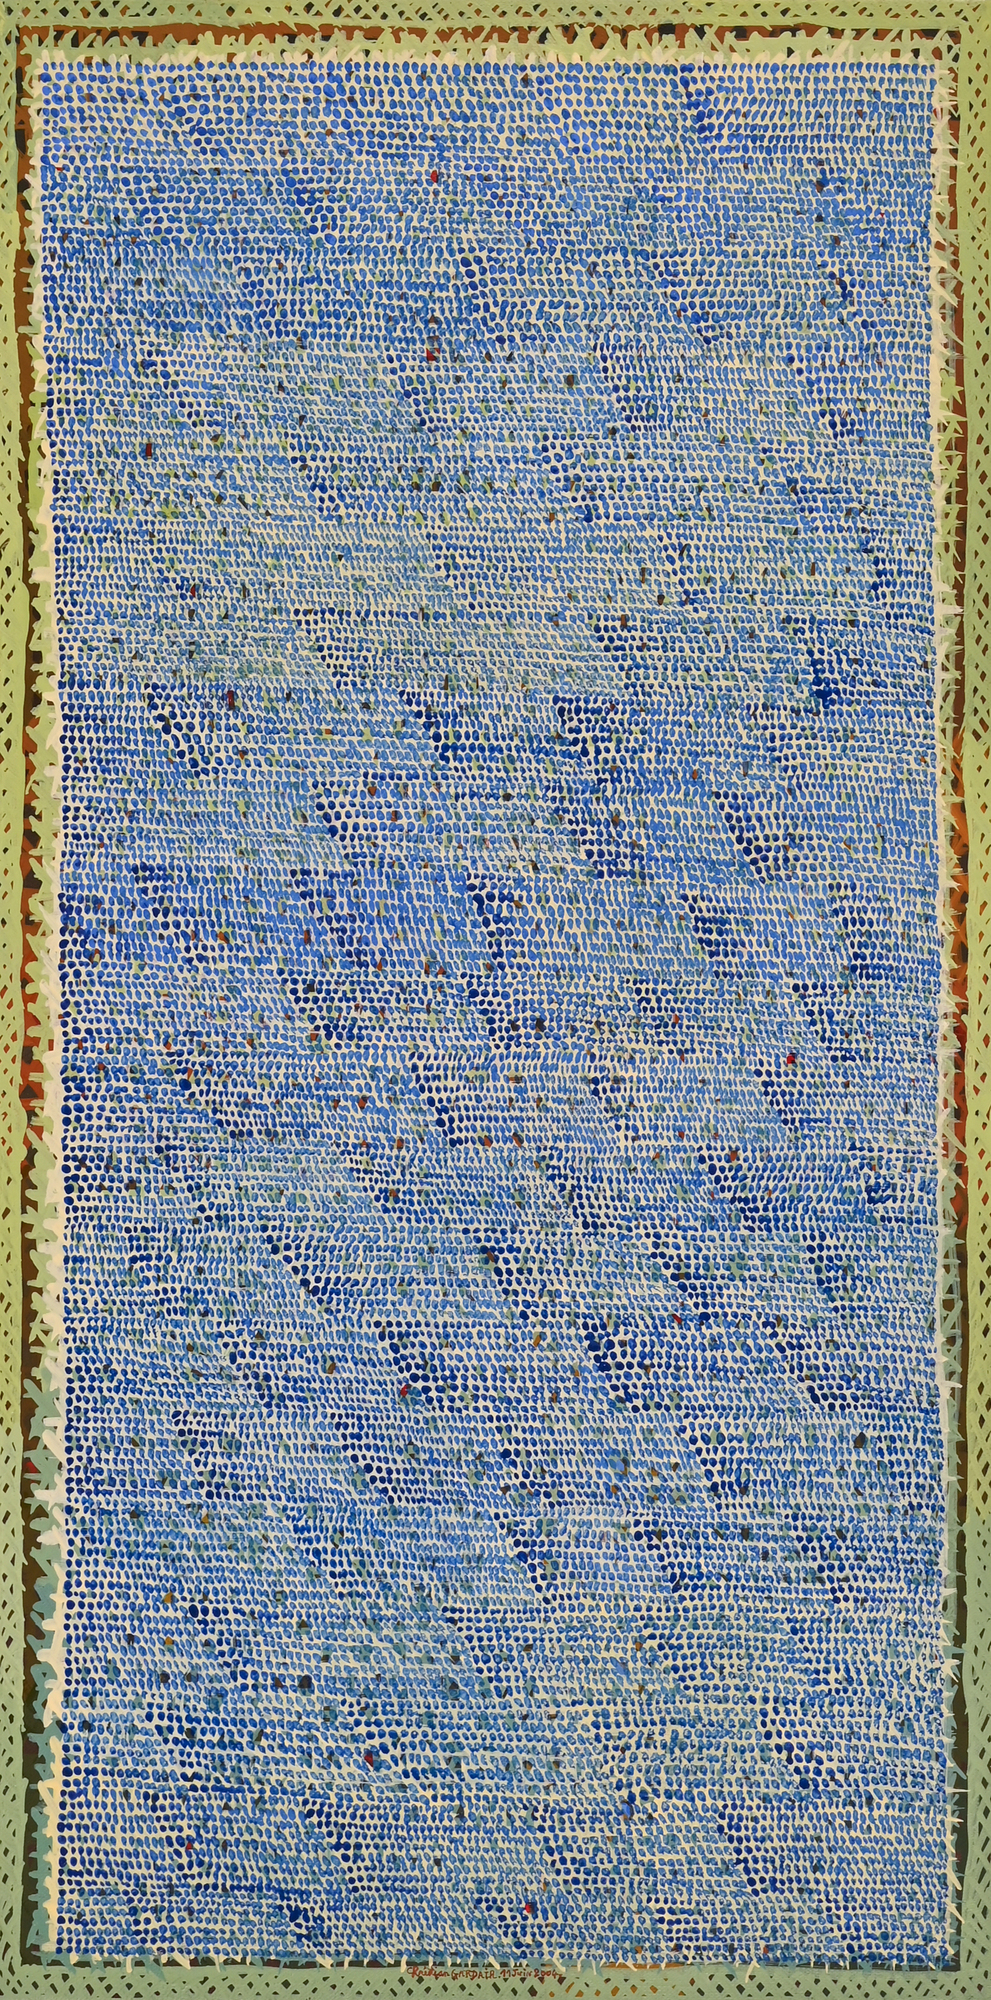 Christian GARDAIR. 11 Juin 2004